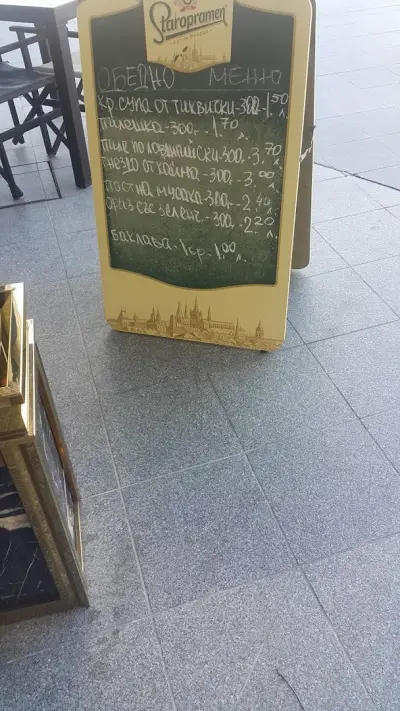 Staropramen
ОБЕДНО МЕНЮ
КР. СУПА ОТ ТИКВИЧКИ-300-1.50 л.
ПИЛЕШКА-300, - 1.70 л.
ПИЛЕ ПО ЛОВДЖИЙСКИ-300, - 3.70 л.
ГНЕЗДО ОТ КАЙМА -300, - 3.00 л.
ПОСТНА МУСАКА-300, - 2.40 л.
ОРИЗ СЪС ЗЕЛЕНЧ.-300, - 2.20 л.
БАКЛАВА - 1 бр. - 1.00 л.